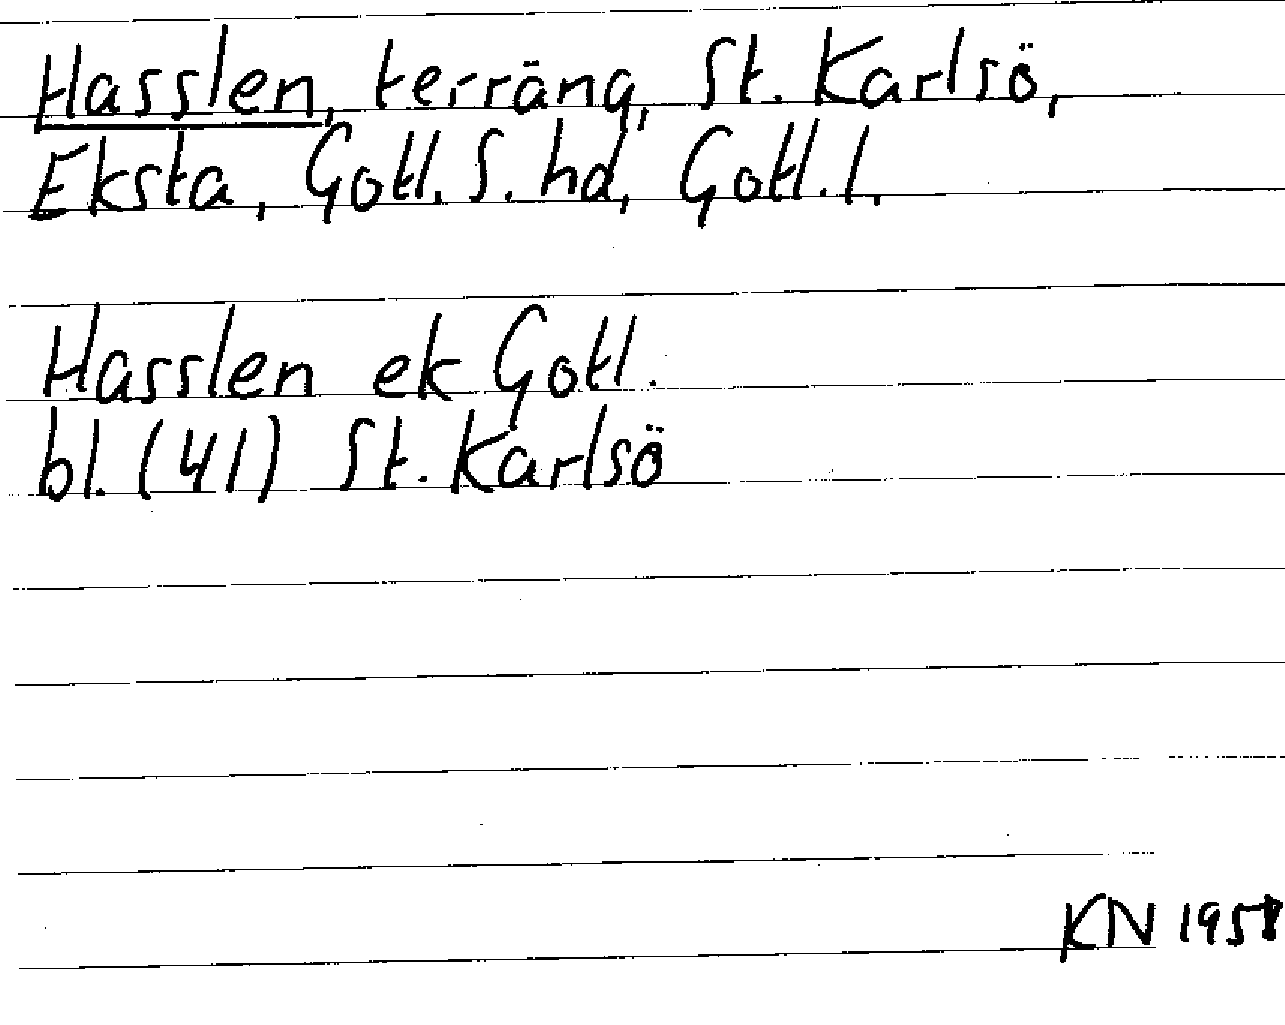 Hasslen, terräng, St. Karlsö,
Eksta, Gotl. S. hd, Gotl. l.
Hasslen ek Gotl.
bl. (41) St. Karlsö
KN 1958